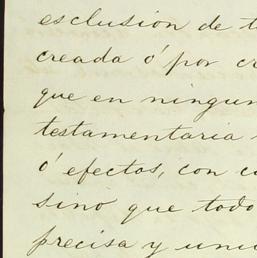 esclusión de t
creada ó por cr
que en ningun
testamentaria
ó efectos, con cu
sino que todo
precisa y uni